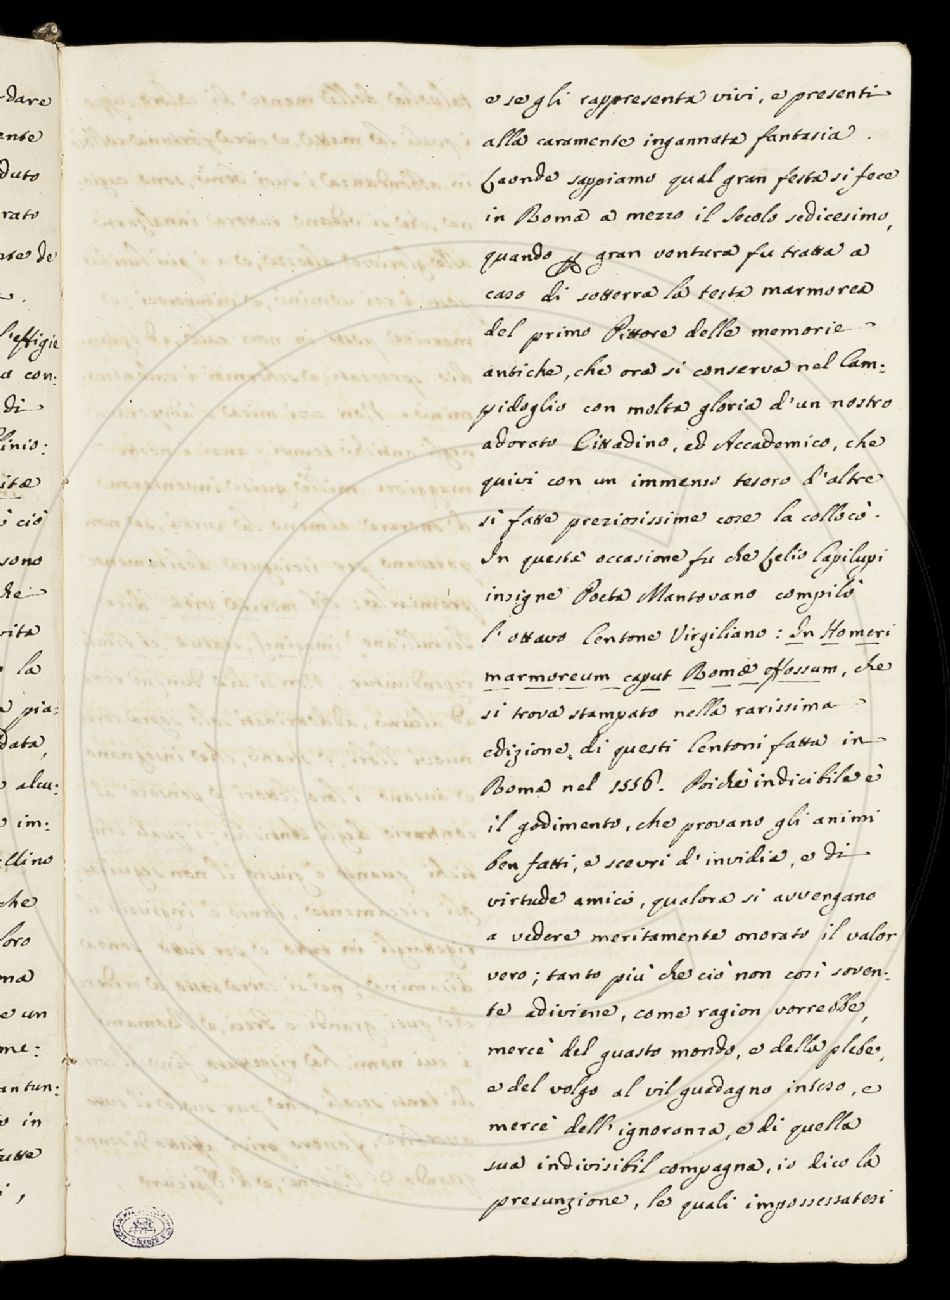 e se gli rappresenta vivi, e presenti
alla caramente ingannata fantasia.
Laonde sappiamo qual gran festa si fece
in Roma a mezzo il Secolo sedicesimo,
quando gran ventura fu tratta a
caso di sotterra la testa marmorea
del primo Pittore delle memorie
antiche, che ora si conserva nel Cam:
pidoglio con molta gloria d'un nostro
adorato Cittadino, ed Accademico, che
quivi con un immenso tesoro d'altre
sì fatte preziosissime cose la collocò.
In questa occasione fu che Lelio Capilupi
insigne Poeta Mantovano compilò
l'ottavo Centone Virgiliano: In Homeri
marmoreum caput Romæ effossum, che
si trova stampato nella rarissima
edizione di questi Centoni fatta in
Roma nel 1556. Poichè indicibile è
il godimento, che provano gli animi
ben fatti, e scevri d'invidia, e di
virtude amici, qualora si avvengano
a vedere meritamente onorato il valor
vero; tanto più che ciò non così soven:
te adiviene, come ragion vorrebbe,
mercè del guasto mondo, e della plebe,
e del volgo al vil guadagno inteso, e
mercè dell'ignoranza, e di quella
sua indivisibil compagna, io dico la
presunzione, le quali impossessatesi